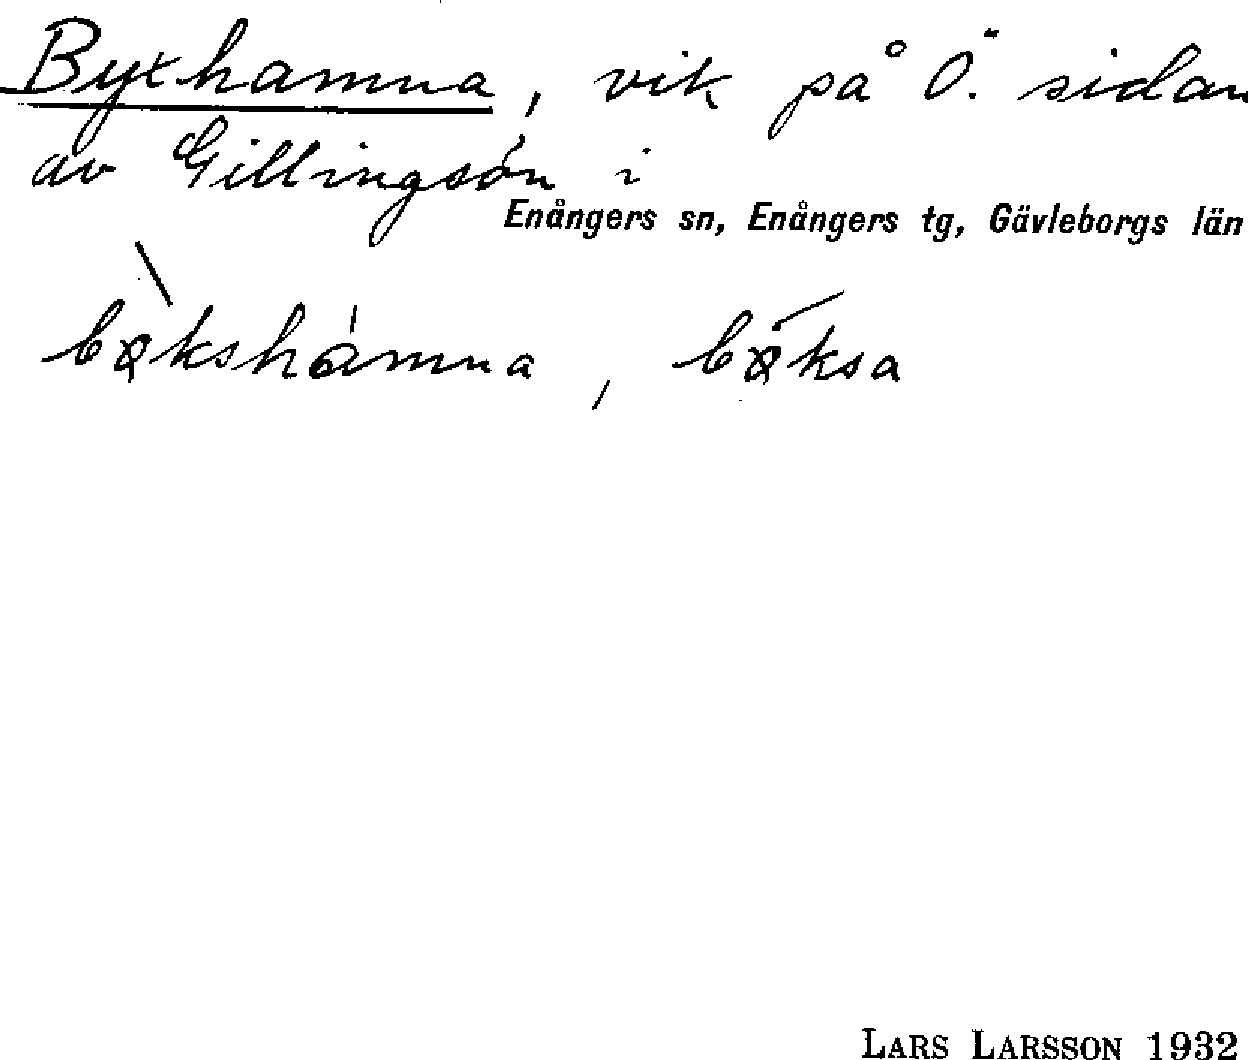 Byxhamna, vik på Ö. sidan
av Gillingsön i
Enångers sn, Enångers tg, Gävleborgs län
LARS LARSSON 1932